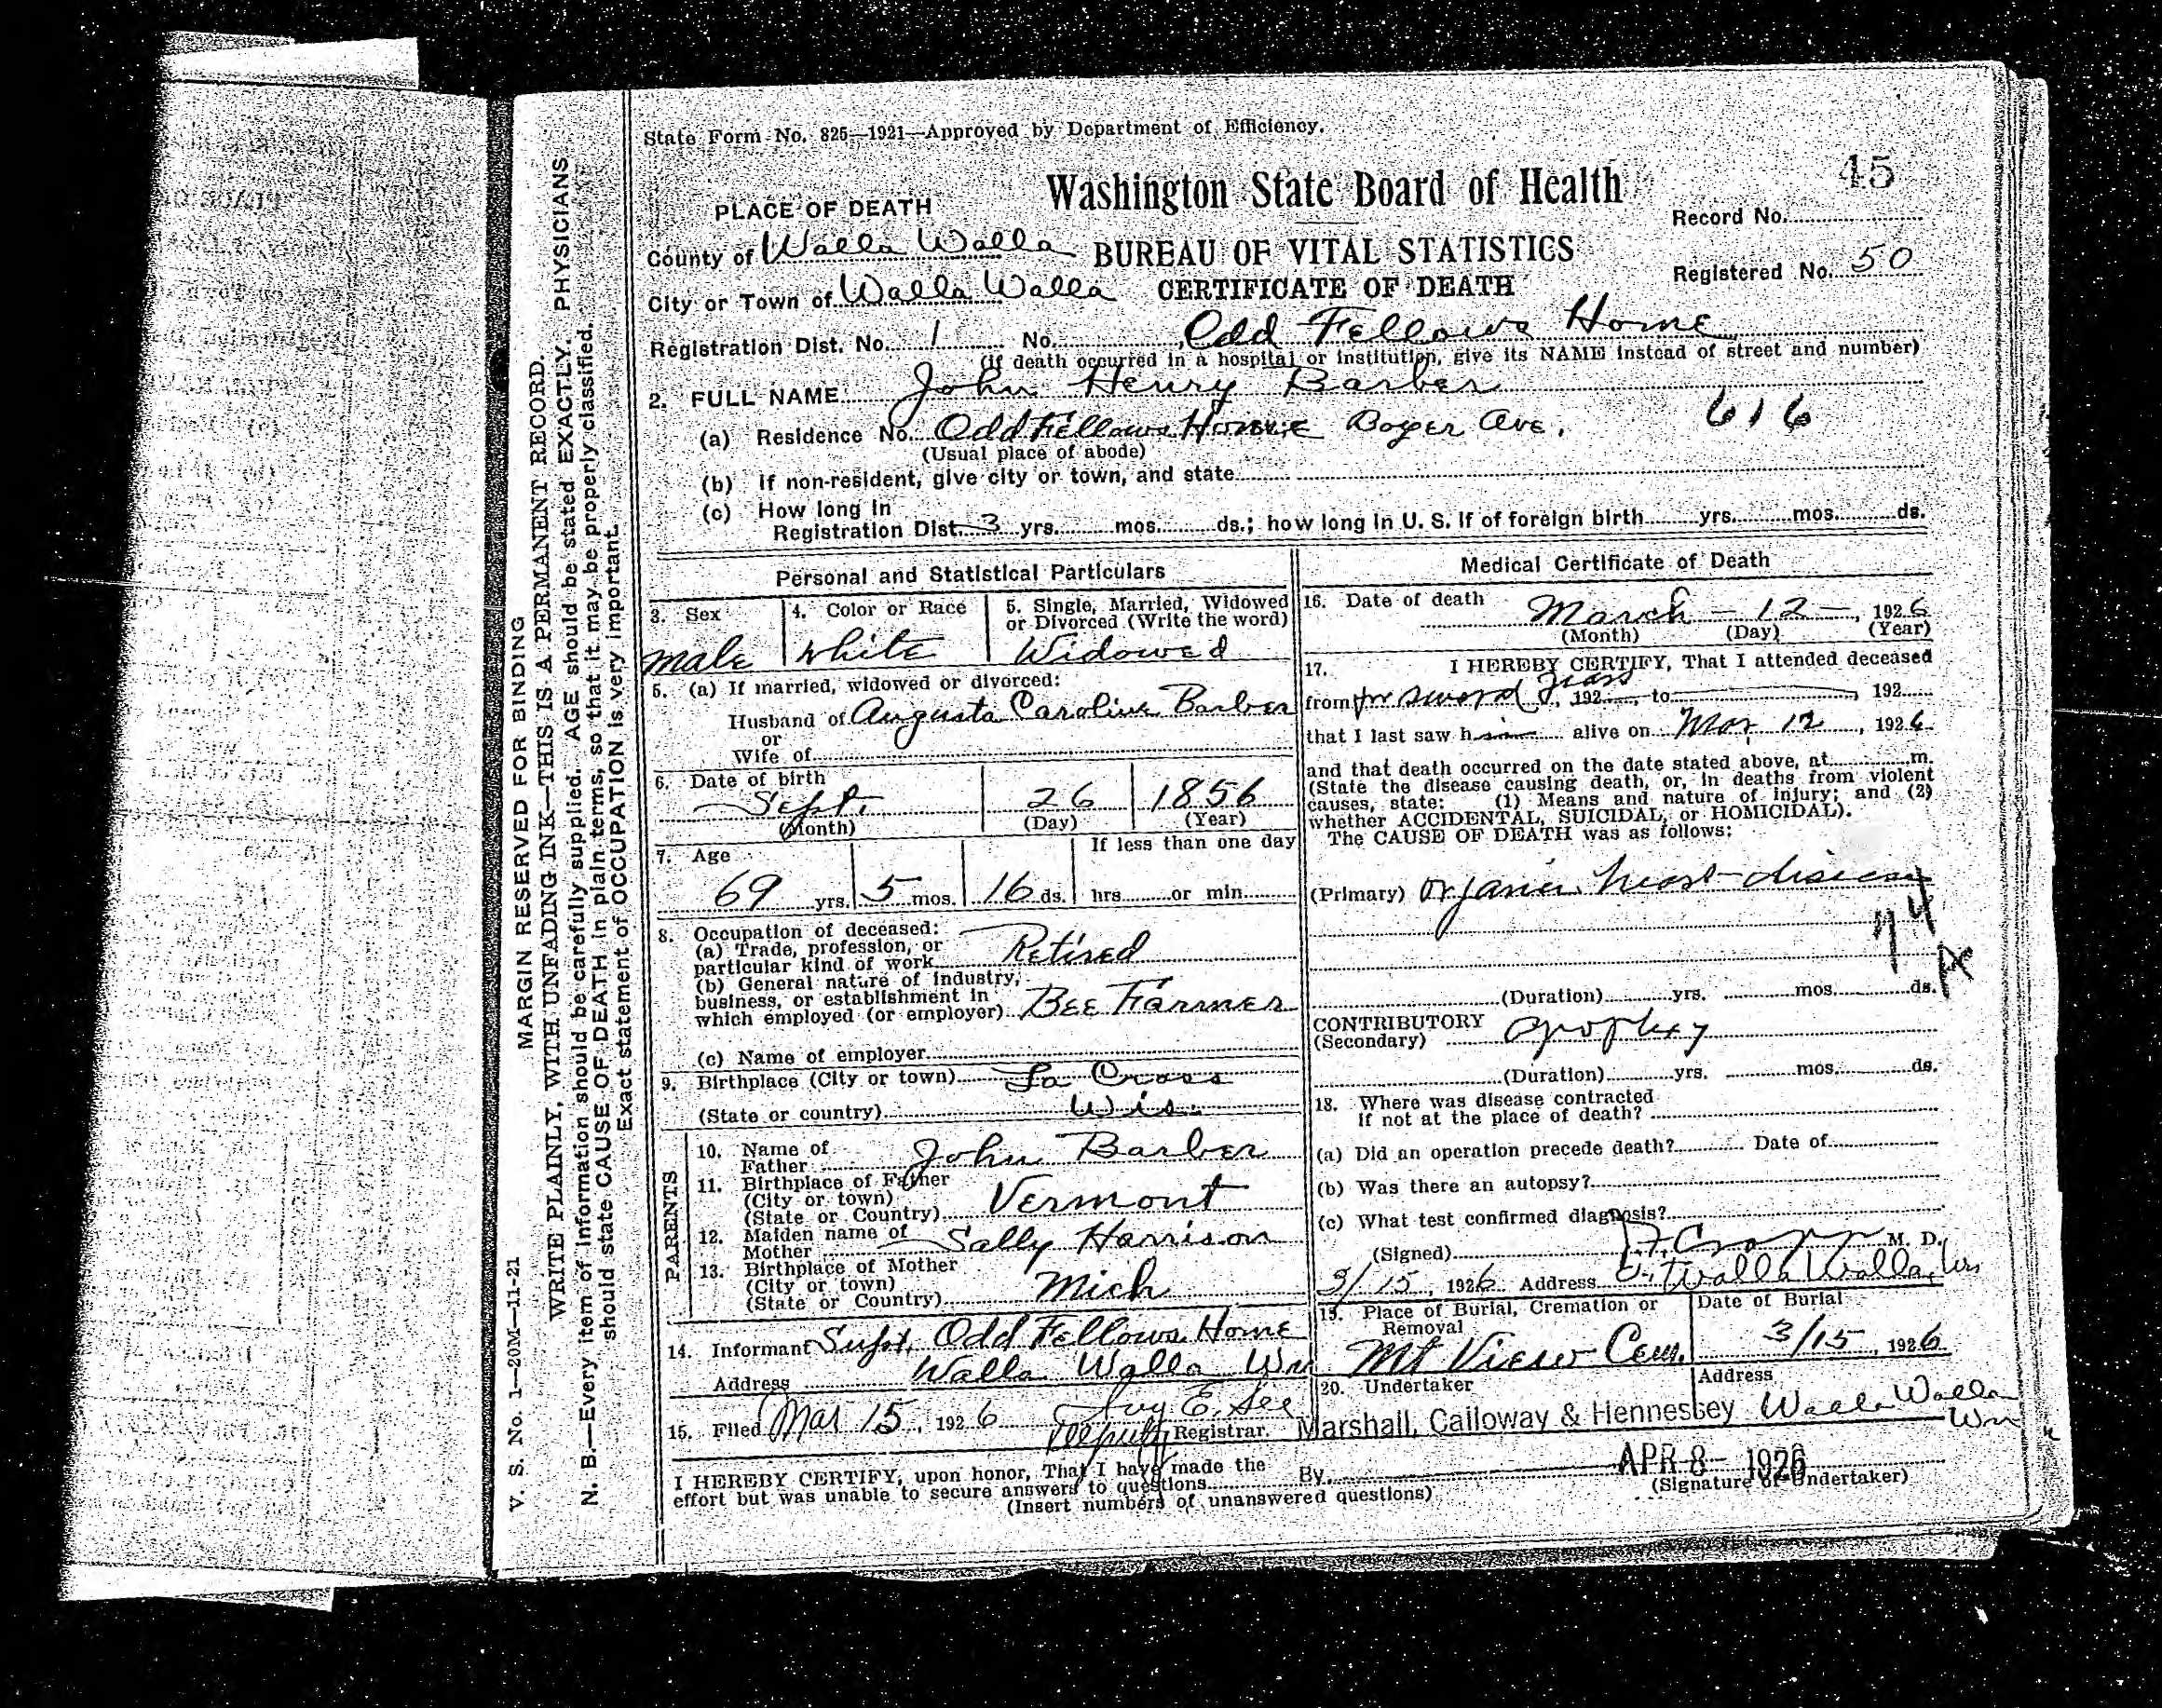 State Form No. 825—1921—Approved by Department of Efficiency.
45
Washington State Board of Health
PLACE OF DEATH
Record No.
County of Walla Walla
BUREAU OF VITAL STATISTICS
Registered No. 50
City or Town of Walla Walla
CERTIFICATE OF DEATH
Registration Dist. No. 1 No. Odd Fellows Home
(If death occurred in a hospital or institution, give its NAME instead of street and number)
2. FULL NAME John Henry Barber
(a) Residence No. Odd Fellows Home Boyer Ave. 616
(Usual place of abode)
(b) If non-resident, give city or town, and state
(c) How long in
Registration Dist. 3 yrs. mos. ds.; how long in U. S. if of foreign birth yrs. mos. ds.
Personal and Statistical Particulars
3. Sex
male
4. Color or Race
white
5. Single, Married, Widowed
or Divorced (Write the word)
Widowed
5. (a) If married, widowed or divorced:
Husband of Augusta Caroline Barber
or
Wife of
6. Date of birth
Sept. 26 1856
(Month) (Day) (Year)
7. Age
If less than one day
69 yrs. 5 mos. 16 ds. hrs. or min.
8. Occupation of deceased:
(a) Trade, profession, or
particular kind of work Retired
(b) General nature of industry,
business, or establishment in
which employed (or employer) Bee Farmer
(c) Name of employer
9. Birthplace (City or town) La Cross
(State or country) Wis.
PARENTS
10. Name of
Father John Barber
11. Birthplace of Father
(City or town)
(State or Country) Vermont
12. Maiden name of
Mother Sally Harrison
13. Birthplace of Mother
(City or town)
(State or Country) Mich
14. Informant Supt. Odd Fellows Home
Address Walla Walla Wn
15. Filed Mar 15, 1926 E. See
Deputy Registrar.
I HEREBY CERTIFY, upon honor, That I have made the
effort but was unable to secure answers to questions
(Insert numbers of unanswered questions)
Medical Certificate of Death
16. Date of death March - 12 -, 1926
(Month) (Day) (Year)
17. I HEREBY CERTIFY, That I attended deceased
from for several years, 192 , to , 192
that I last saw him alive on Mar 12, 1926
and that death occurred on the date stated above, at m.
(State the disease causing death, or, in deaths from violent
causes, state: (1) Means and nature of injury; and (2)
whether ACCIDENTAL, SUICIDAL, or HOMICIDAL).
The CAUSE OF DEATH was as follows:
(Primary) Organic heart disease
74
A
(Duration) yrs. mos. ds.
CONTRIBUTORY
(Secondary) apoplexy
(Duration) yrs. mos. ds.
18. Where was disease contracted
if not at the place of death?
(a) Did an operation precede death? Date of
(b) Was there an autopsy?
(c) What test confirmed diagnosis?
(Signed) Cropp M. D.
3/15, 1926 Address Walla Walla, Wn
19. Place of Burial, Cremation or
Removal
Mt View Cem.
Date of Burial
3/15, 1926
20. Undertaker
Marshall, Calloway & Hennessey
Address
Walla Walla
Wn
By
APR 8 - 1926
(Signature of Undertaker)
V. S. No. 1—20M—11-21
MARGIN RESERVED FOR BINDING
WRITE PLAINLY, WITH UNFADING INK—THIS IS A PERMANENT RECORD.
N. B.—Every item of information should be carefully supplied. AGE should be stated EXACTLY. PHYSICIANS
should state CAUSE OF DEATH in plain terms, so that it may be properly classified.
Exact statement of OCCUPATION is very important.